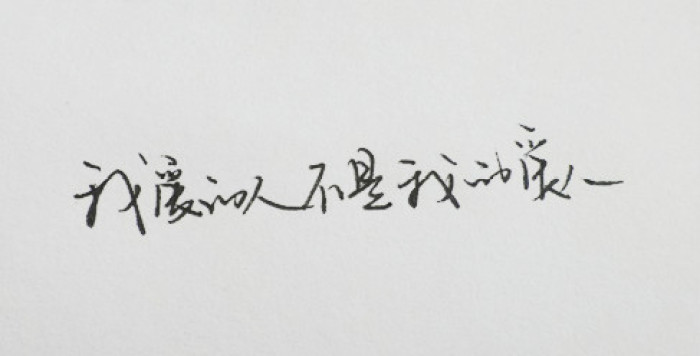 我爱的人不是我的爱人